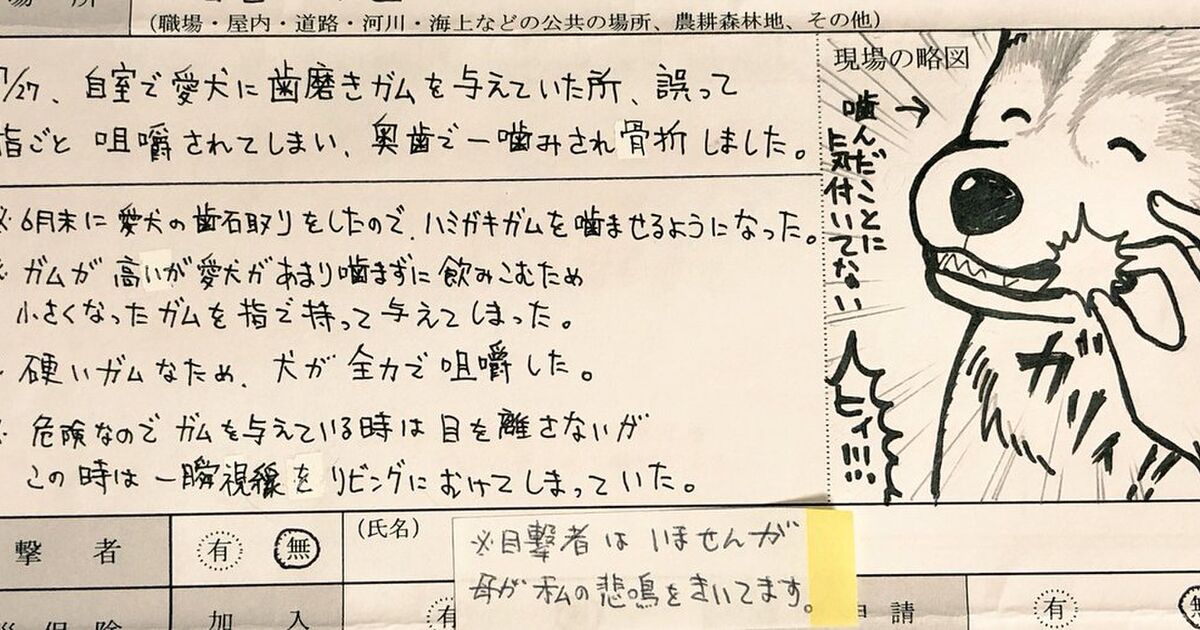 場所
(職場・屋内・道路・河川・海上などの公共の場所、農耕森林地、その他)
7/27、自室で愛犬に歯磨きガムを与えていた所、誤って
指ごと咀嚼されてしまい、奥歯で一噛みされ骨折しました。
※6月末に愛犬の歯石取りをしたので、ハミガキガムを噛ませるようになった。
※ガムが高いが愛犬があまり噛まずに飲みこむため
小さくなったガムを指で持って与えてしまった。
硬いガムなため、犬が全力で咀嚼した。
※危険なのでガムを与えている時は目を離さないが
この時は一瞬視線をリビングにむけてしまっていた。
現場の略図
噛んだことに
気付いてない
ガブッ
ヒィ!!!
撃者
有
無
(氏名)
※目撃者はいませんが
母が私の悲鳴をきいてます。
加入
有
申請
有
無